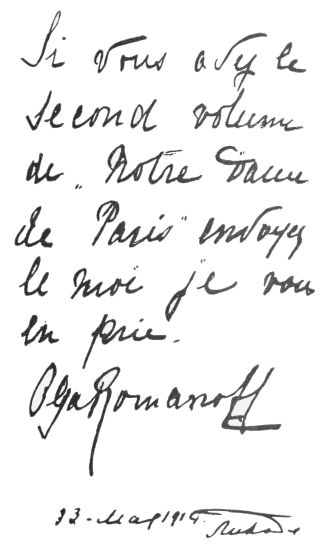 Si vous avez le
second volume
de „Notre Dame
de Paris" envoyez
le moi je vous
en prie.
Olga Romanoff